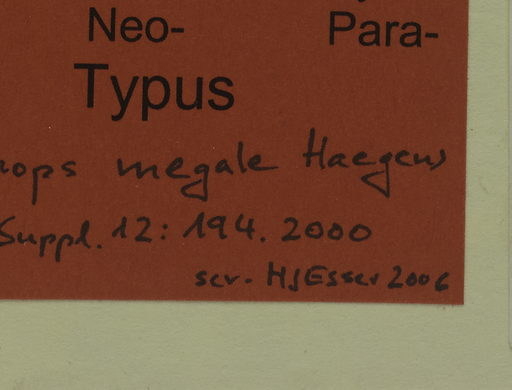 Neo- Para-
Typus
nops megale Haegens
Suppl. 12: 194. 2000
scr. HJEsser 2006